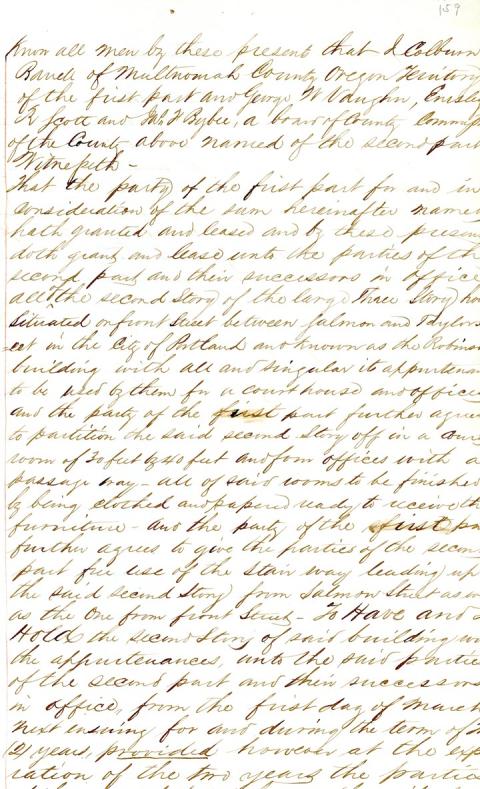 159
Know all men by these present that I Colburn
Barell of Multnomah County Oregon Teritory
of the first part and George W Vaughn, Ensley
R Scott and Jas F Bybee, a board of County Commis
of the County above named of the second part
Witnesseth -
That the party of the first part for and in
consideration of the sum hereinafter named
hath granted and leased and by these presen
doth grant and lease unto the parties of th
second part and their successors in office
all the second Story of the large Three Story ho
Situated on front Street between Salmon and Taylor s
eet in the City of Portland and known as the Robinson
building with all and singular its appurtenan
to be used by them for a court house and office
and the party of the first part further agree
to partition the said second Story off in a cour
room of 30 feet by 40 feet and four offices with a
passage way - all of said rooms to be finished
by being clothed and papered ready to receive th
furniture - and the party of the first pa
further agrees to give the parties of the secon
part free use of the stair way leading up
the said second Story from Salmon Street as w
as the One from front Street - To Have and
Hold the second Story of said building wi
the appurtenances, unto the said partie
of the second part and their successors
in office, from the first day of March
next ensuing for and during the term of
(2) years, provided however at the exp
iration of the two years the partie